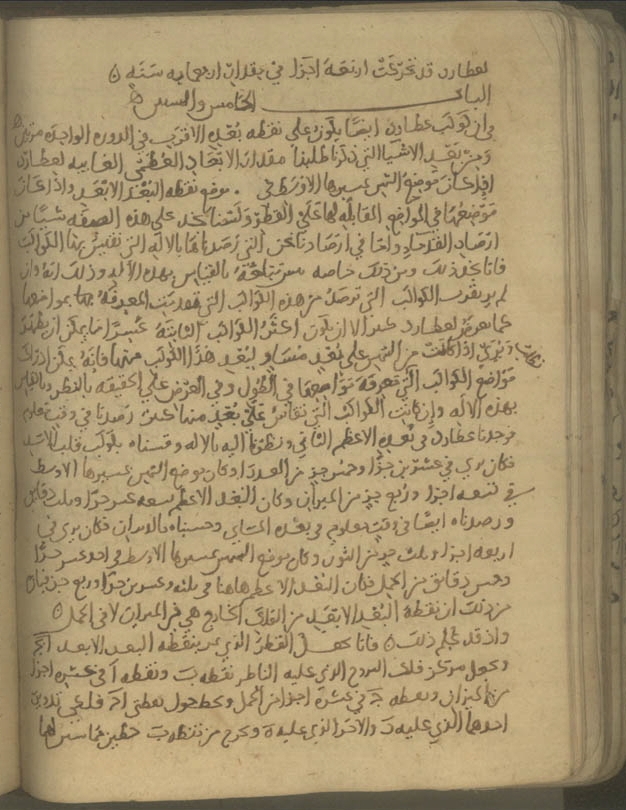 لعطارد قد تحركت اربعة اجزا في مقدار اربعمايه سنه
الباب الخامس والستين
في ان كوكب عطارد ايضا يكون على نقطه بعده الاقرب في الدوره الواحده مرتين
ومن بعد الاشيا التي ذكرنا طلبنا مقدار الابعاد العظمى الغايبه لعطارد
اذا كان موضع الشمس بمسيرها الاوسط في موضع نقطه البعد الابعد واذا كان
موضعها في المواضع المقابله لها على القطر ولسنا نجد على هذه الصفه شيا من
ارصاد القدما واما في ارصادنا نحن التي رصدناها بالاله التي نقيس بها الكواكب
فانا نجد ذلك ومن ذلك خاصه منفعة القياس بهذه الاله وذلك انه وان
لم ير بقرب الكواكب التي ترصد من هذه الكواكب التي تقدمت المعرفة بها بمواضعها
كما يعرض لعطارد كثيرا لان يكون اكثر الكواكب الثابته عسرا ما يمكن ان يظهر
ويرى اذا كانت من الشمس على بعد مساو لبعد هذا الكوكب منها فانه يمكن ادراك
مواضع الكواكب التي تعرفه مواضعها في الطول وفي العرض على الحقيقه بالنظر والقياس
بهذه الاله وان كانت الكواكب التي نقاس على بعد منها كثير رصدنا في وقت معلوم
فوجدنا عطارد في بعده الاعظم الثاني ونظرنا اليه بالاله وقسناه بكوكب قلب الاسد
فكان يرى في عشرين جزا وخمس جز من العذرا وكان موضع الشمس بمسيرها الاوسط
في تسعه اجزا وربع جز من الميزان وكان البعد الاعظم تسعه عشر جزا وثلث دقايق
ورصدناه ايضا في وقت معلوم في بعده المسايي وحسبناه بالدبران فكان يرى في
اربعه اجزا وثلث جز من الثور وكان موضع الشمس بمسيرها الاوسط في احد عشر جزا
وخمس دقايق من الحمل فكان البعد الاعظم هاهنا في ثلثه وعشرين جزا وربع جز فبان
من ذلك ان نقطة البعد الابعد من الفلك الخارج هي في الميزان لا في الحمل
واذ قد علم ذلك فانا نجعل القطر الذي يمر بنقطه البعد الابعد ابج
ونجعل مركز فلك البروج الذي عليه الناظر نقطه ب ونقطه ا في عشره اجزا
من الميزان ونقطه ج في عشرة اجزا من الحمل ونخط حول نقطتي ا ج فلكي تدوير
احدهما الذي عليه د والاخر الذي عليه ه ونخرج من نقطه ب خطين مماسين لهما